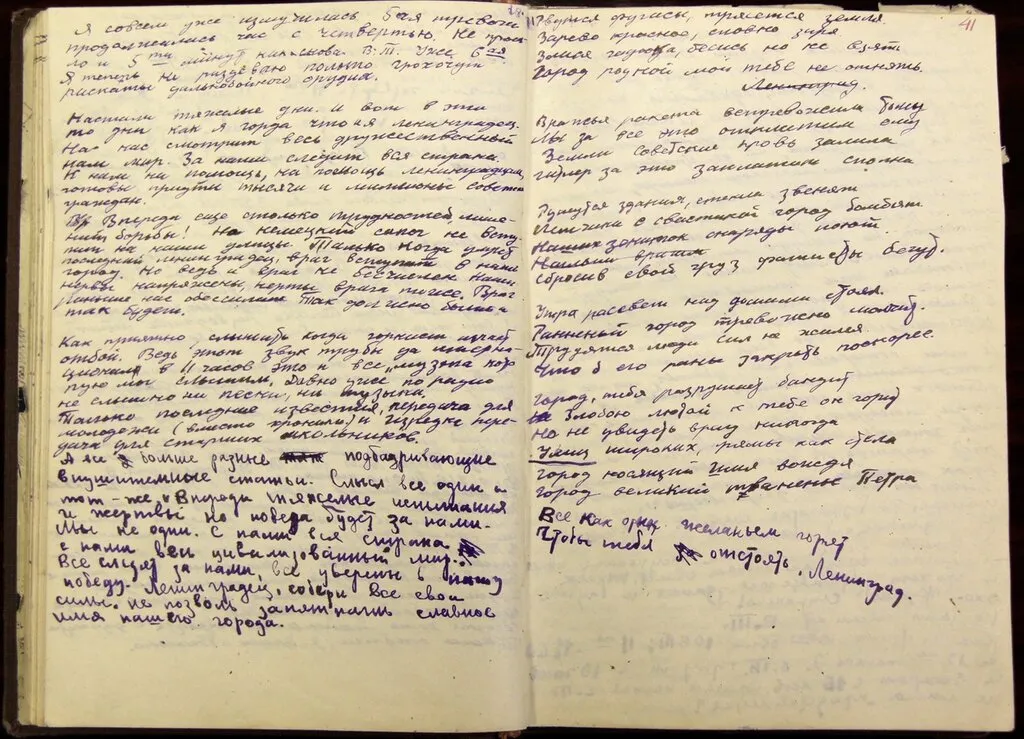 Я совсем уже измучилась. 5ая тревога
продолжалась час с четвертью. Не прош-
ло и 5ти минут как снова В.Т. Уже 6ая
Я теперь не раздеваю пальто грохочут
раскаты дальнобойного орудия.
Настали тяжелые дни. И вот в эти
то дни как я горда что я ленинградец.
На нас смотрит весь дружественный
нам мир. За нами следит вся страна.
К нам на помощь, на помощь ленинградцам,
готовы придти тысячи и миллионы советск
граждан.
Впереди еще столько трудностей лише-
ний борьбы! Но немецкий сапог не всту-
пит на наши улицы. Только когда умрет
последний ленинградец, враг вступит в наш
город. Но ведь и враг не бесчислен. Наши
нервы напряжены, нервы врага тоже. Враг
раньше нас обессилит. Так должно быть и
так будет.
Как приятно, слышать когда горнист играет
отбой. Ведь этот звук трубы да интерна-
ционал в 11 часов это и все „музыка кото-
рую мы слышим. Давно уже по радио
не слышно ни песни, ни музыки.
Только последние известия, передача для
молодежи (вместо хроники) и изредка пере-
дача для старших школьников.
А все больше разные подбадривающие
внушительные статьи. Смысл все один и
тот-же. „Впереди тяжелые испытания
и жертвы но победа будет за нами.
Мы не одни. С нами вся страна
с нами весь цивилизованный мир.
Все следят за нами, все уверены в нашу
победу. Ленинградец, собери все свои
силы. не позволь запятнать славное
имя нашего города.
41
Рвутся фугасы, трясется земля.
Зарево красное, словно заря.
Злися гадюка, бесись но не взять
Город родной мой тебе не отнять.
Ленинград.
Вражья ракета встревожила тьму
Мы за все это отплатим ему
Землю советскую кровь залила
Гитлер за это заплатит сполна
Рушутся здания, стекла звенят
Летчики о свастикой город бомбят.
Наших зениток снаряды поют.
сбросив свой груз фашисты бегут.
Утра рассвет над домами стоял.
Раненый город тревожно молчит.
Трудятся люди сил не жалея
Что б его раны закрыть поскорее.
Город, тебя разрушает бандит
Злобою лютой к тебе он горит
Но не увидеть врагу никогда
Улиц широких, прямых как стела
Город носящий имя вождя
Город великий творенье Петра
Все как один желаньем горят
Чтобы тебя отстоять, Ленинград.